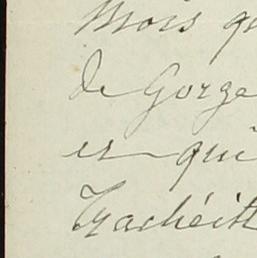 Mois qu
de Gorge
et qui
Trachéit